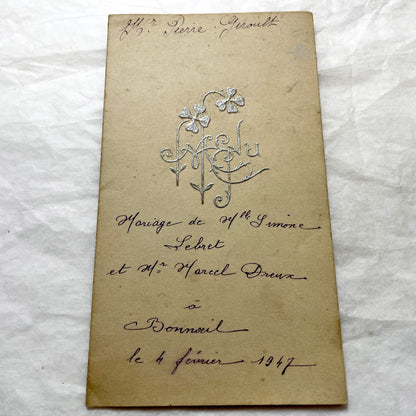 Mr Pierre Giroult
Menu
Mariage de Mlle Simone
Lebret
et Mr Marcel Dreux
à
Bonneuil
le 4 février 1947